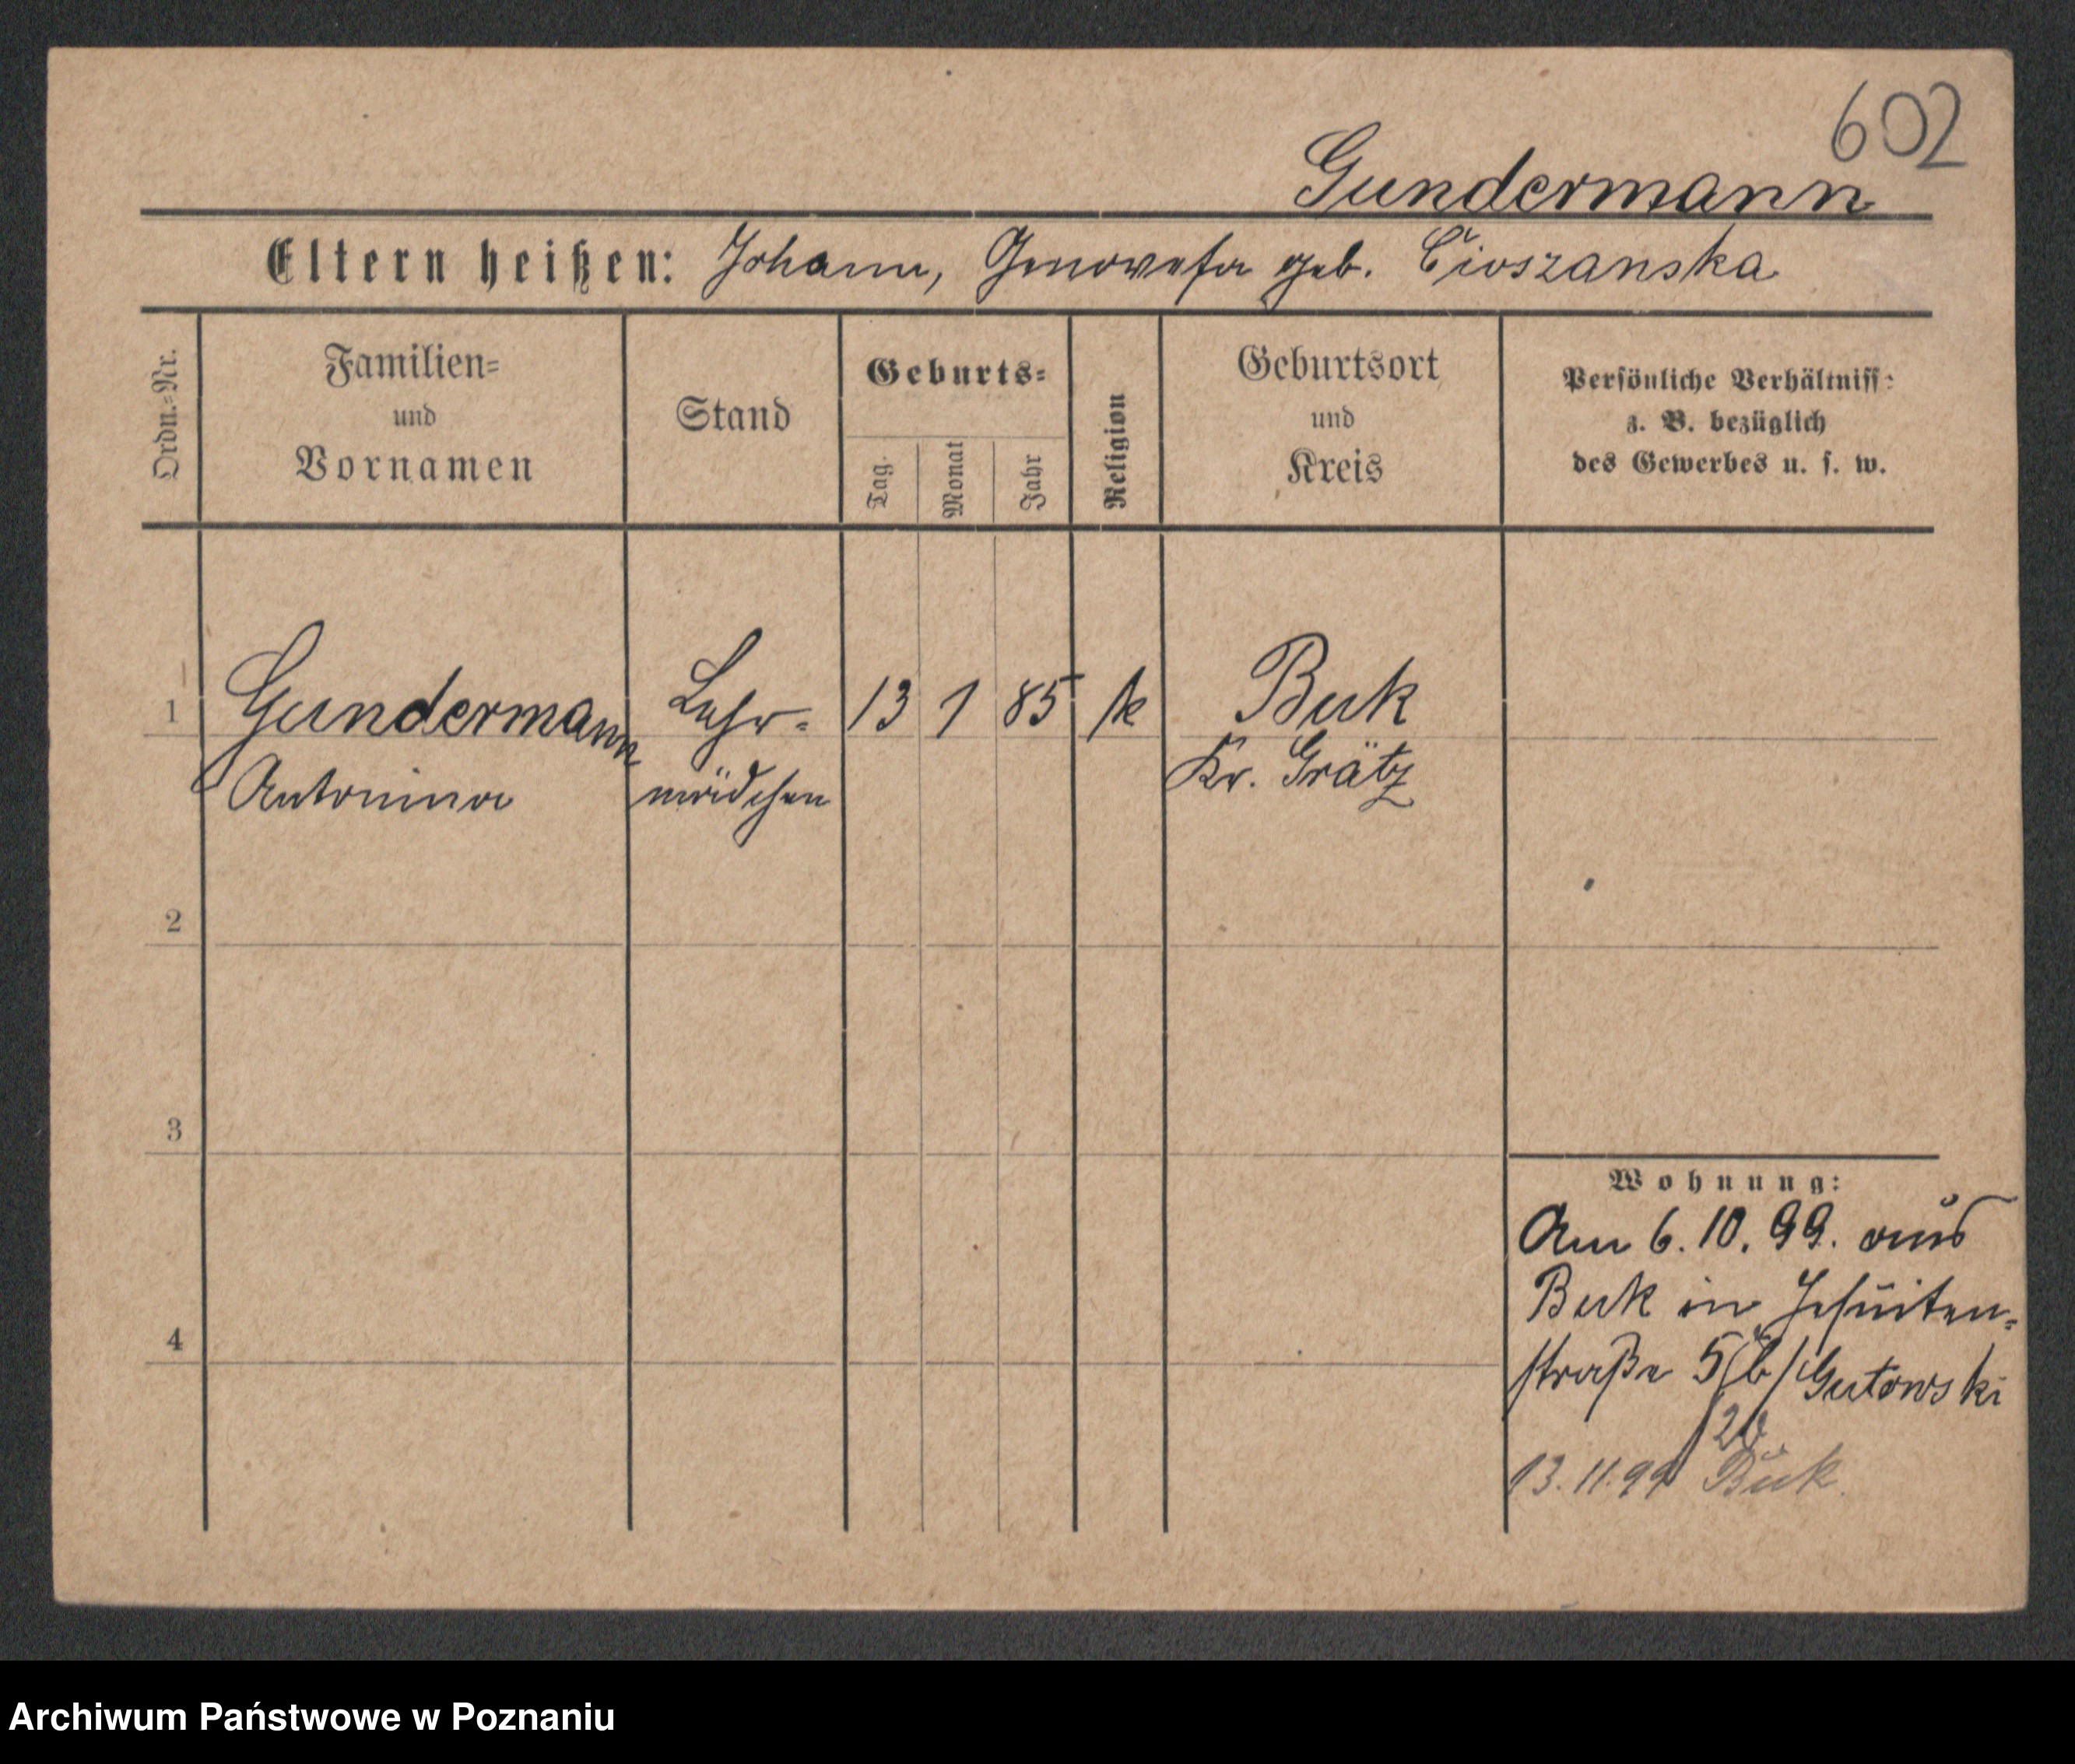 602
Gundermann
Eltern heißen: Johann, Genowefa geb. Cioszanska
Ordn.-Nr.
Familien-
und
Vornamen
Stand
Geburts-
Tag.
Monat
Jahr
Religion
Geburtsort
und
Kreis
Persönliche Verhältnisse
z. B. bezüglich
des Gewerbes u. s. w.
1 Gundermann Lehr- 13 1 85 k Buk
Antonina mädchen Kr. Grätz
2
3
4
Wohnung:
Am 6. 10. 99. aus
Buk in Jesuiten-
straße 5 b/ Gutowski
13. 11. 99 Buk.
Archiwum Państwowe w Poznaniu